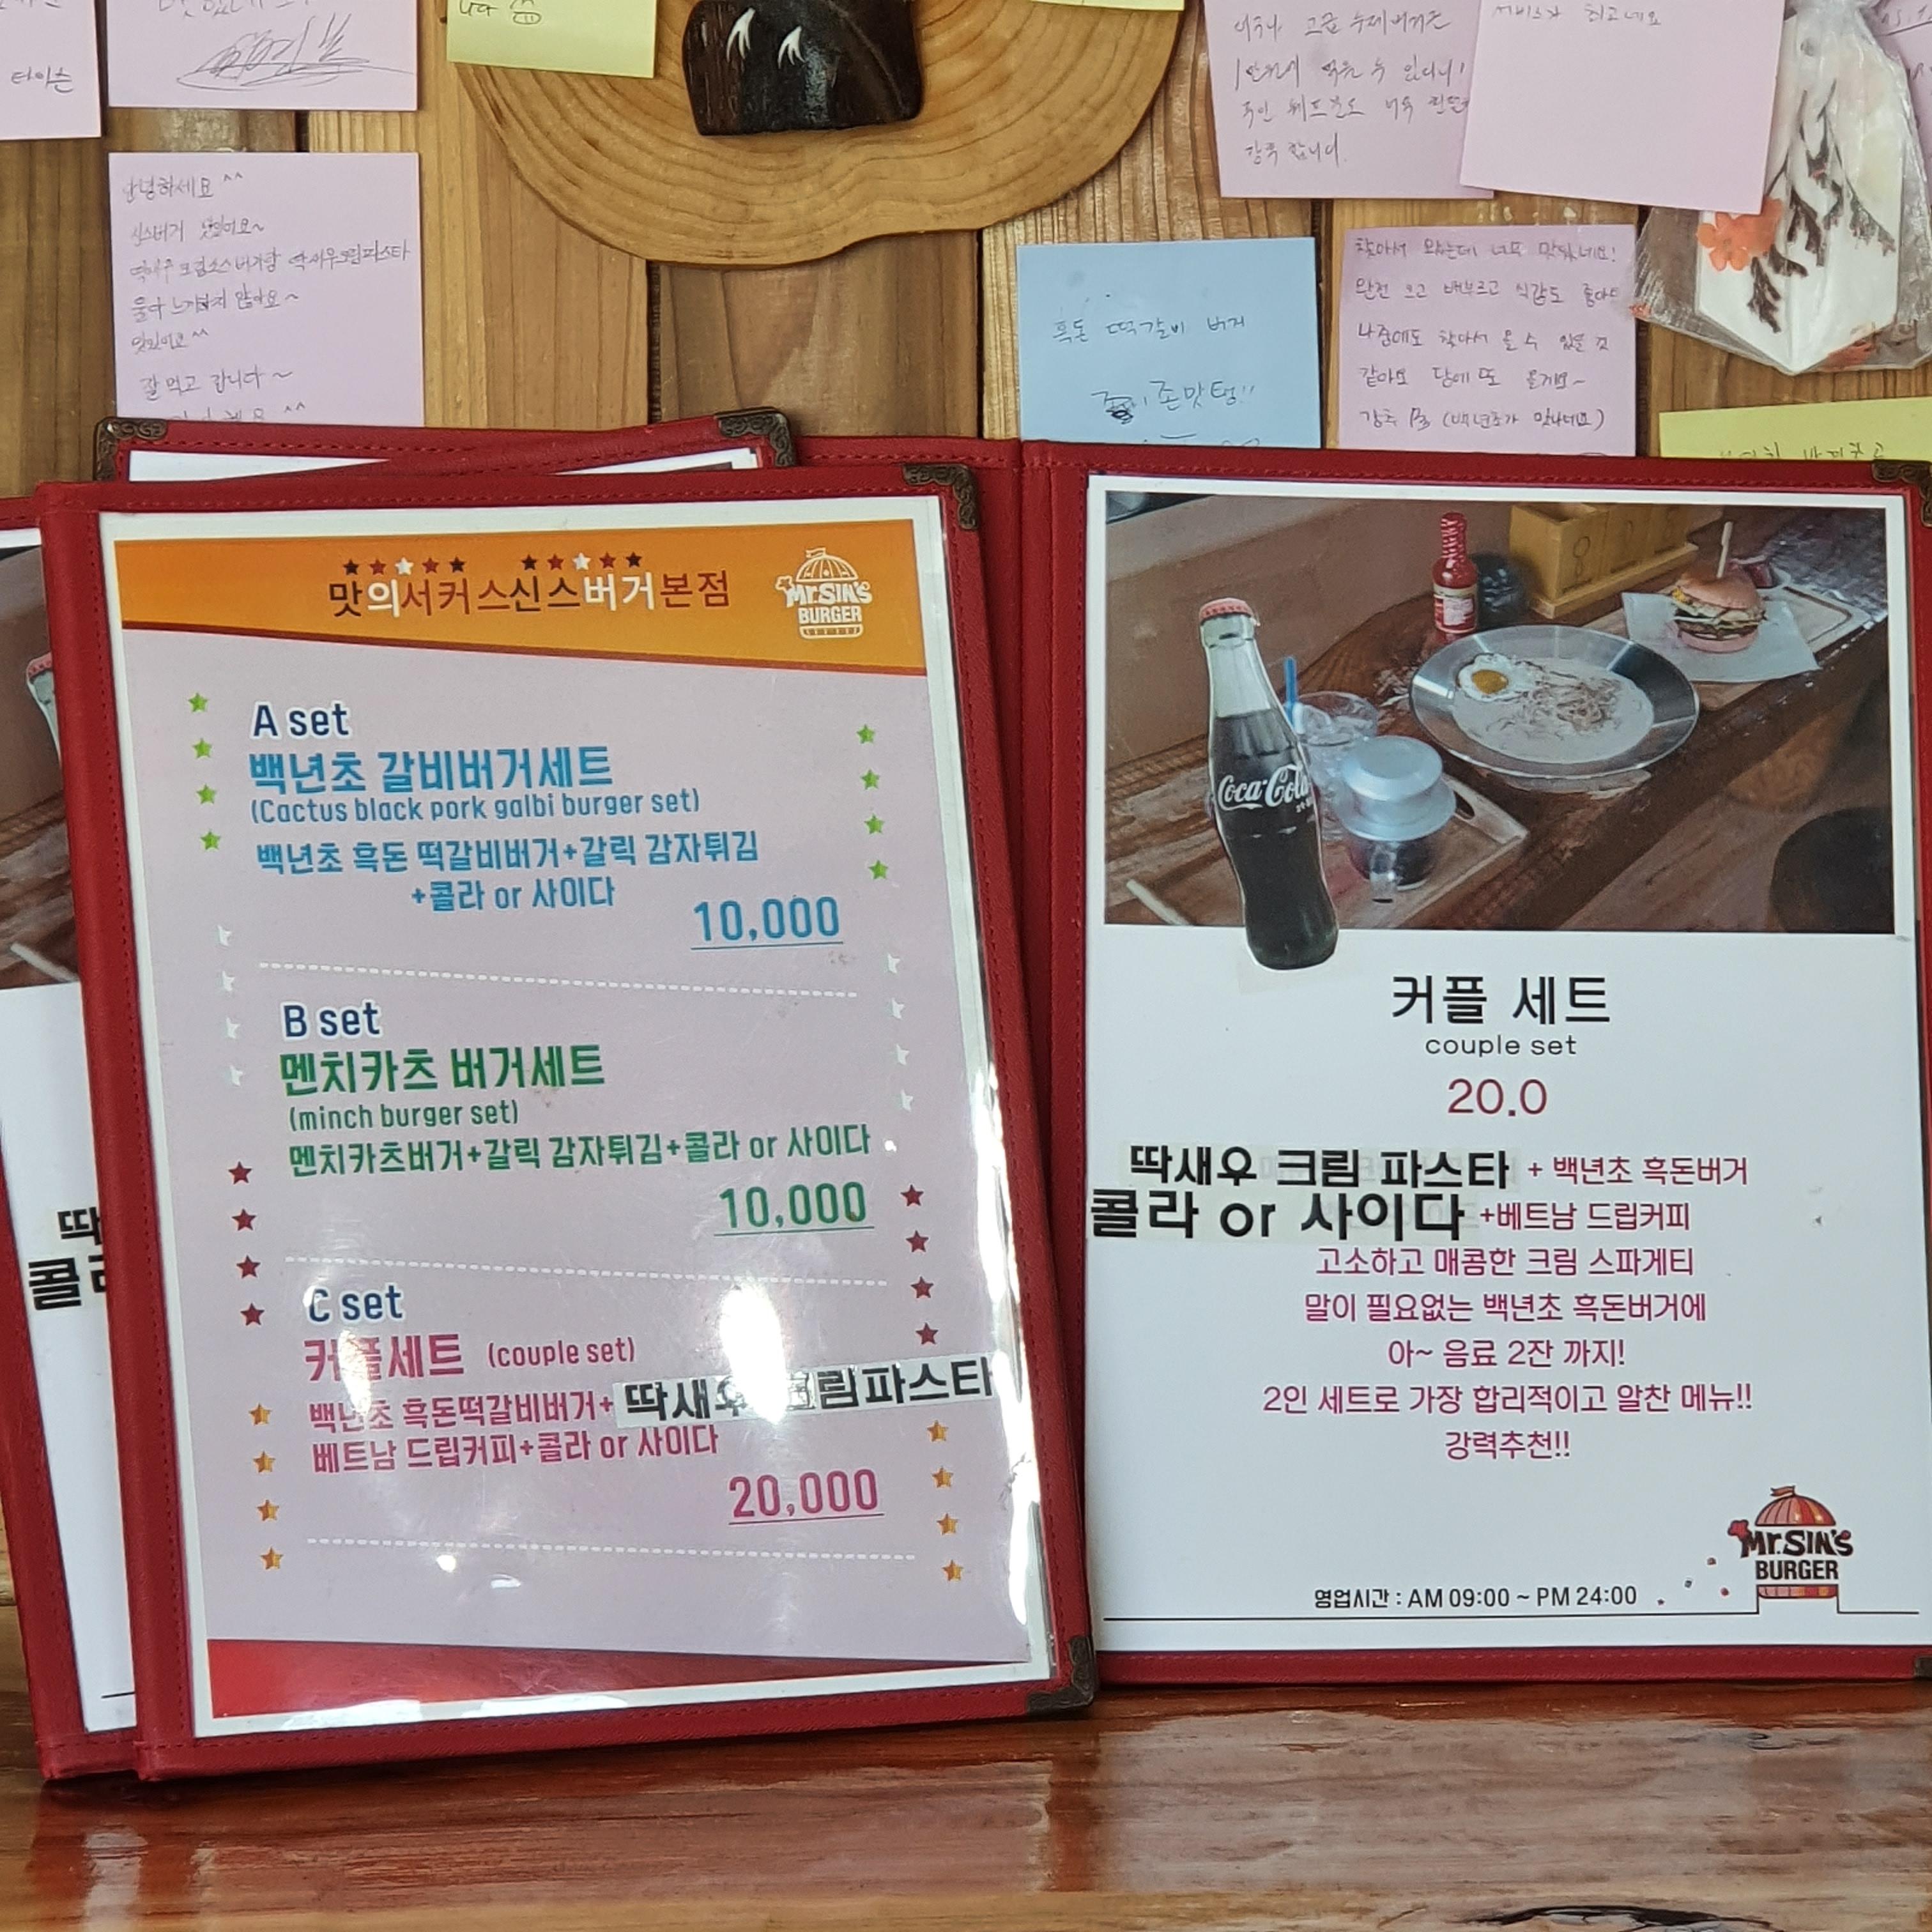 타이슨
안녕하세요 ^^
신스버거 맛있어요~
딱새우크림파스타
둘다 느끼하지 않아요~
맛있어요^^
잘 먹고 갑니다~
고급 수제버거를
1만원에 먹을 수 있다니!
강추 합니다.
서비스가 최고네요
흑돈 떡갈비 버거
존맛탱!!
찾아서 왔는데 너무 맛있네요!
완전 크고 배부르고 식감도 좋아요
나중에도 찾아서 올 수 있을 것
같아요 담에 또 올게요~
강추 (백년초가 맛나네요)
맛의서커스신스버거본점
Mr.SIN'S
BURGER
A set
백년초 갈비버거세트
(Cactus black pork galbi burger set)
백년초 흑돈 떡갈비버거+갈릭 감자튀김
+콜라 or 사이다
10,000
B set
멘치카츠 버거세트
(minch burger set)
멘치카츠버거+갈릭 감자튀김+콜라 or 사이다
10,000
C set
커플세트 (couple set)
백년초 흑돈떡갈비버거+ 딱새우 크림파스타
베트남 드립커피+콜라 or 사이다
20,000
딱
콜라
Coca-Cola
커플 세트
couple set
20.0
딱새우 크림 파스타 + 백년초 흑돈버거
콜라 or 사이다 +베트남 드립커피
고소하고 매콤한 크림 스파게티
말이 필요없는 백년초 흑돈버거에
아~ 음료 2잔 까지!
2인 세트로 가장 합리적이고 알찬 메뉴!!
강력추천!!
Mr.SIN'S
BURGER
영업시간 : AM 09:00 ~ PM 24:00